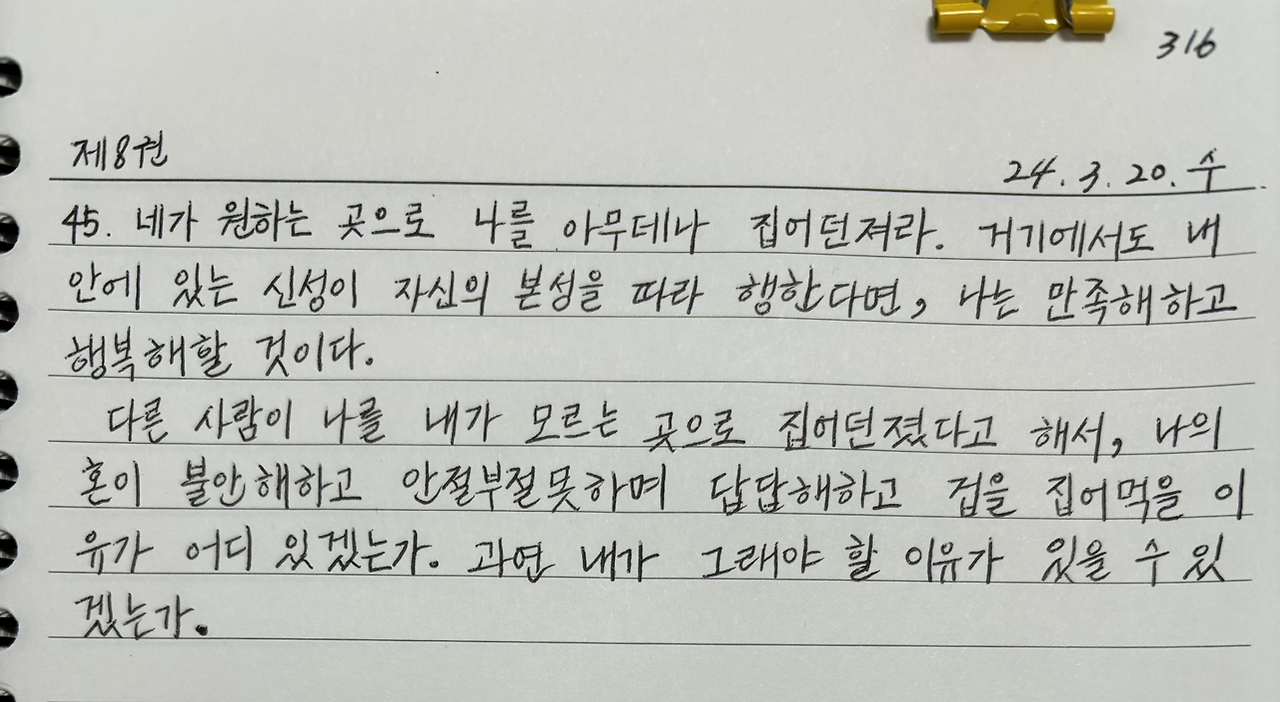 316
제8권
24.3.20.수
45. 네가 원하는 곳으로 나를 아무데나 집어던져라. 거기에서도 내
안에 있는 신성이 자신의 본성을 따라 행한다면, 나는 만족해하고
행복해할 것이다.
다른 사람이 나를 내가 모르는 곳으로 집어던졌다고 해서, 나의
혼이 불안해하고 안절부절못하며 답답해하고 겁을 집어먹을 이
유가 어디 있겠는가. 과연 내가 그래야 할 이유가 있을 수 있
겠는가.